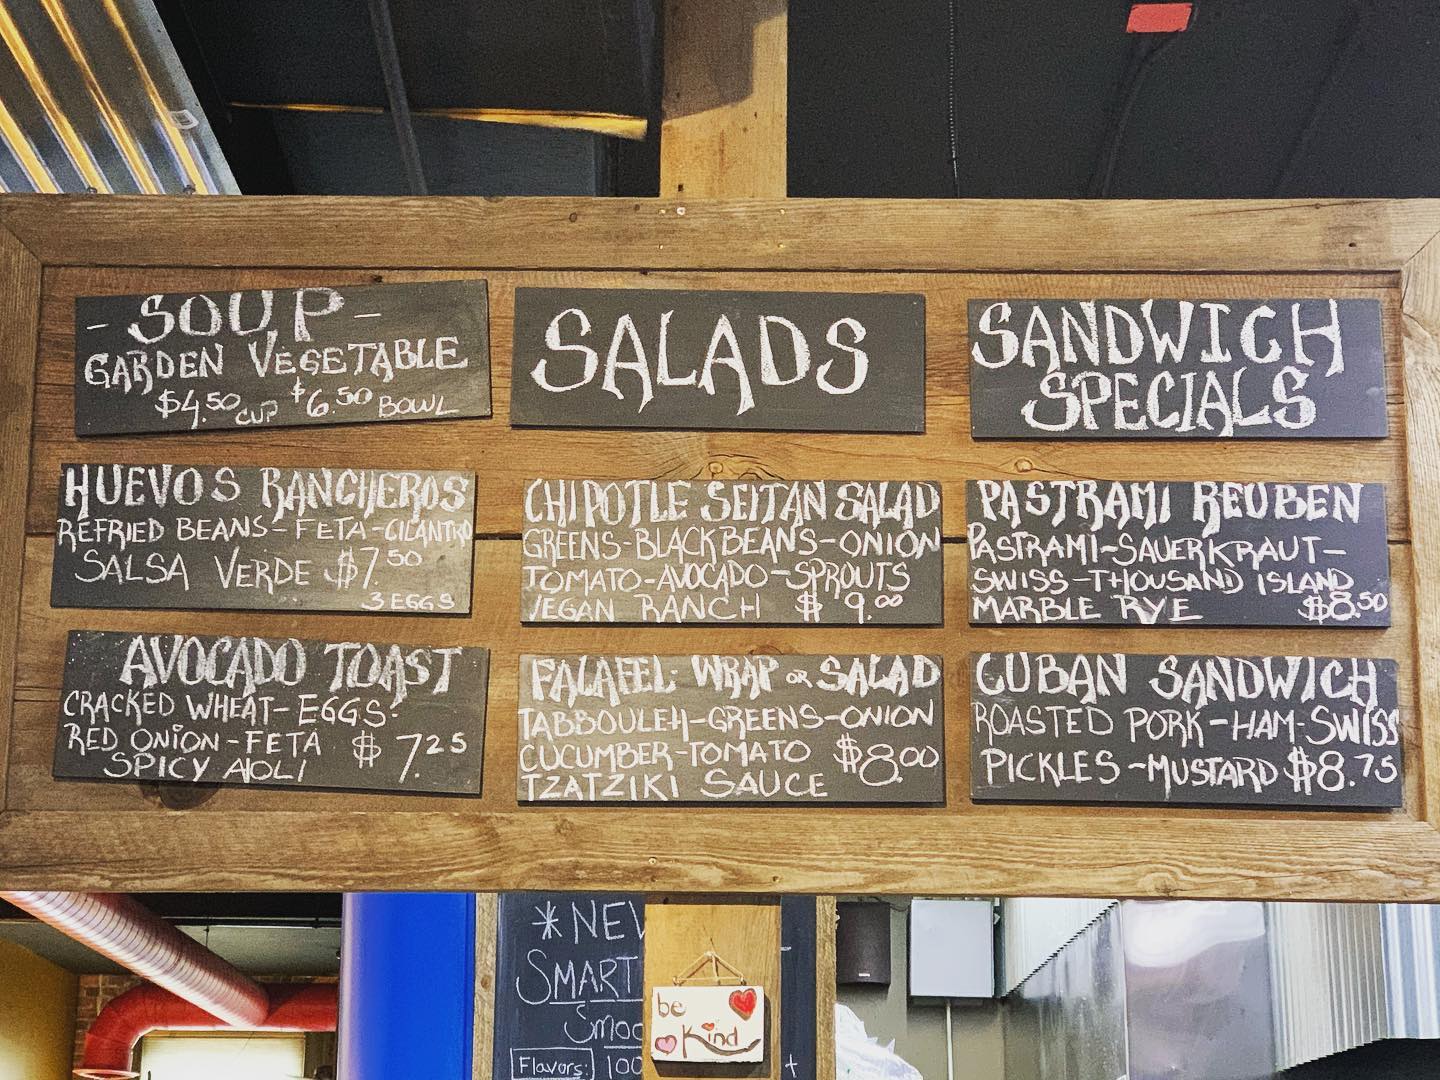 - SOUP -
GARDEN VEGETABLE
$4.50 CUP $6.50 BOWL
HUEVOS RANCHEROS
REFRIED BEANS - FETA - CILANTRO
SALSA VERDE $7.50
3 EGGS
AVOCADO TOAST
CRACKED WHEAT - EGGS -
RED ONION - FETA $7.25
SPICY AIOLI
SALADS
CHIPOTLE SEITAN SALAD
GREENS - BLACK BEANS - ONION
TOMATO - AVOCADO - SPROUTS
VEGAN RANCH $9.00
FALAFEL: WRAP OR SALAD
TABBOULEH - GREENS - ONION
CUCUMBER - TOMATO $8.00
TZATZIKI SAUCE
SANDWICH
SPECIALS
PASTRAMI REUBEN
PASTRAMI - SAUERKRAUT -
SWISS - THOUSAND ISLAND
MARBLE RYE $8.50
CUBAN SANDWICH
ROASTED PORK - HAM - SWISS
PICKLES - MUSTARD $8.75
* NEW
SMART
Smoo
Flavors: 100
be
kind